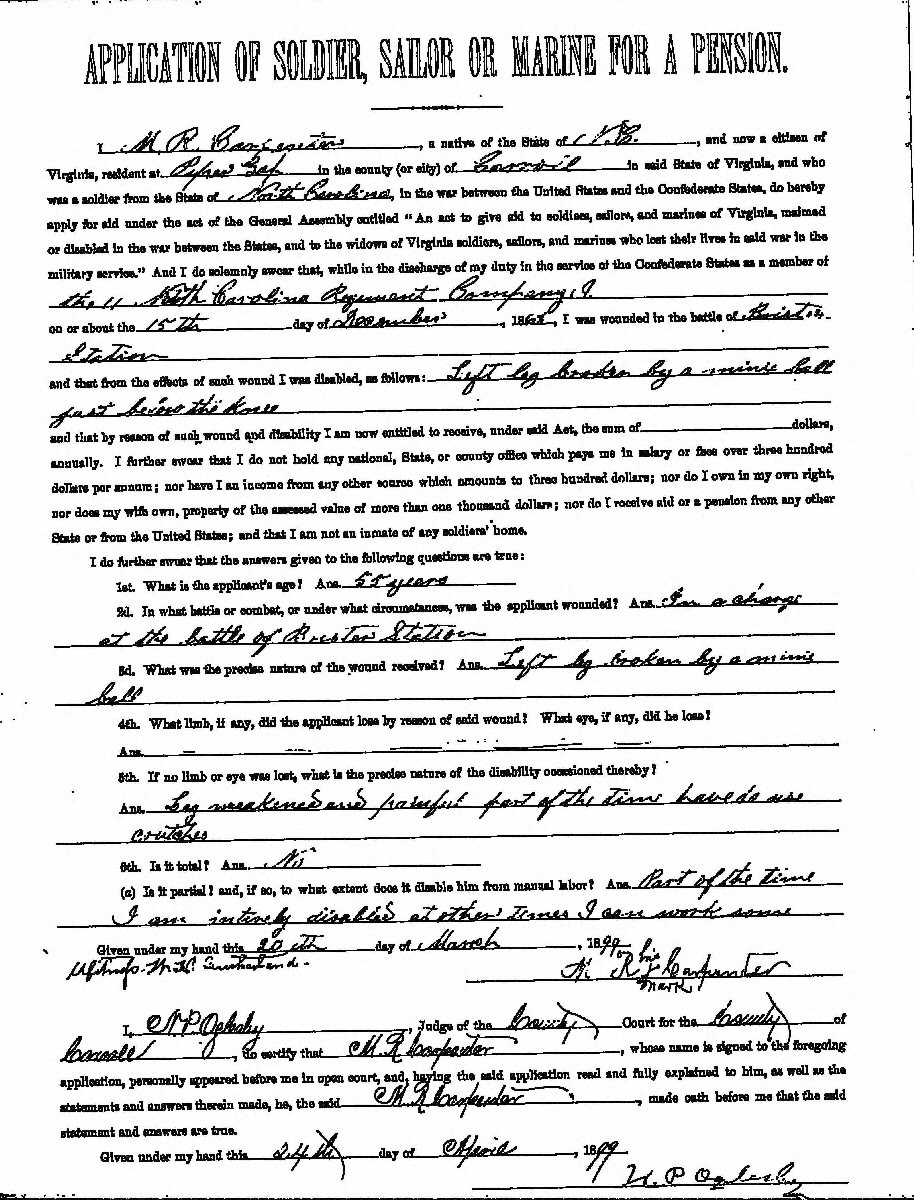 APPLICATION OF SOLDIER, SAILOR OR MARINE FOR A PENSION.
I M. R. Carpenter, a native of the State of N.C., and now a citizen of
Virginia, resident at Pipers Gap in the county (or city) of Carroll in said State of Virginia, and who
was a soldier from the State of North Carolina, in the war between the United States and the Confederate States, do hereby
apply for aid under the act of the General Assembly entitled "An act to give aid to soldiers, sailors, and marines of Virginia, maimed
or disabled in the war between the States, and to the widows of Virginia soldiers, sailors, and marines who lost their lives in said war in the
military service." And I do solemnly swear that, while in the discharge of my duty in the service of the Confederate States as a member of
the 11 North Carolina Regiment Company I.
on or about the 15th day of December, 186, I was wounded in the battle of Bristoe
Station
and that from the effects of such wound I was disabled, as follows: Left leg broken by a minie ball
just below the knee
and that by reason of such wound and disability I am now entitled to receive, under said Act, the sum of dollars,
annually. I further swear that I do not hold any national, State, or county office which pays me in salary or fees over three hundred
dollars per annum; nor have I an income from any other source which amounts to three hundred dollars; nor do I own in my own right,
nor does my wife own, property of the assessed value of more than one thousand dollars; nor do I receive aid or a pension from any other
State or from the United States; and that I am not an inmate of any soldiers' home.
I do further swear that the answers given to the following questions are true:
1st. What is the applicant's age? Ans. 55 years
2d. In what battle or combat, or under what circumstances, was the applicant wounded? Ans. In a charge
at the battle of Station
3d. What was the precise nature of the wound received? Ans. Left leg broken by a minie
ball
4th. What limb, if any, did the applicant lose by reason of said wound? What eye, if any, did he lose?
Ans.
5th. If no limb or eye was lost, what is the precise nature of the disability occasioned thereby?
Ans. Leg weakened and painful part of the time have to use
crutches
6th. Is it total? Ans. No
(a) Is it partial? and, if so, to what extent does it disable him from manual labor? Ans. Part of the time
I am intirely disabled at other times I can work some
Given under my hand this 20th day of March, 1899
his
M. R. X Carpenter
mark
I, N P Oglesby, Judge of the County Court for the County of
Carroll, do certify that M. R. Carpenter, whose name is signed to the foregoing
application, personally appeared before me in open court, and, having the said application read and fully explained to him, as well as the
statements and answers therein made, he, the said M R Carpenter, made oath before me that the said
statement and answers are true.
Given under my hand this 24th day of April, 1899
N. P Oglesby